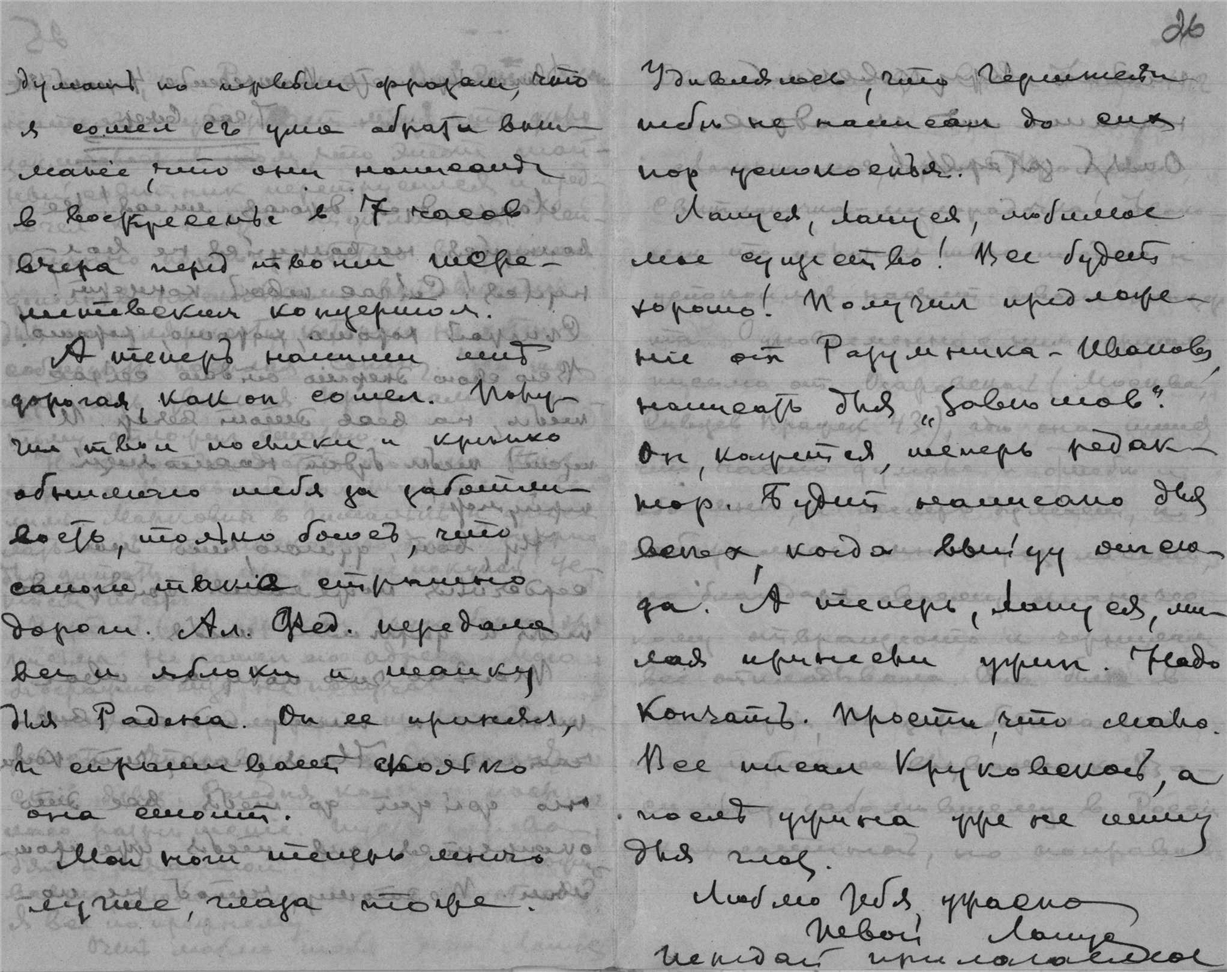 думать по первым фразам, что
я сошел съ ума обрати вни-
манiе, что они написаны
в воскресенье в 7 часов
вчера перед твоим
концертом.
А теперь напиши мнѣ
дорогая, как он сошел. Полу-
чил твои посылки и крѣпко
обнимаю тебя за заботли-
вость, только боюсь, что
сапоги такие страшно
дороги. Ал. Фед. передала
все и яблоки и шапку
для Радека. Он ее принял,
и спрашивает сколько
она стоит.
Мои ноги теперь много
лучше, глаза тоже.
26
Удивляюсь, что
тебѣ не написал до сих
пор успокоенья.
Лапуся, Лапуся, любимое
мое существо! Все будет
хорошо! Получил предложе-
нiе от Разумника-Иванова,
написать для „Завѣтов“.
Он, кажется, теперь редак-
тор. Будет написано для
всѣх, когда выйду отсю-
да. А теперь, Лапуся, ми-
лая принесли ужин. Надо
кончать. Прости, что мало.
Все писал Круковской, а
послѣ ужина уже не пишу
для глаз.
Люблю тебя, ужасно
Твой Лапуся
Передай прилагаемое